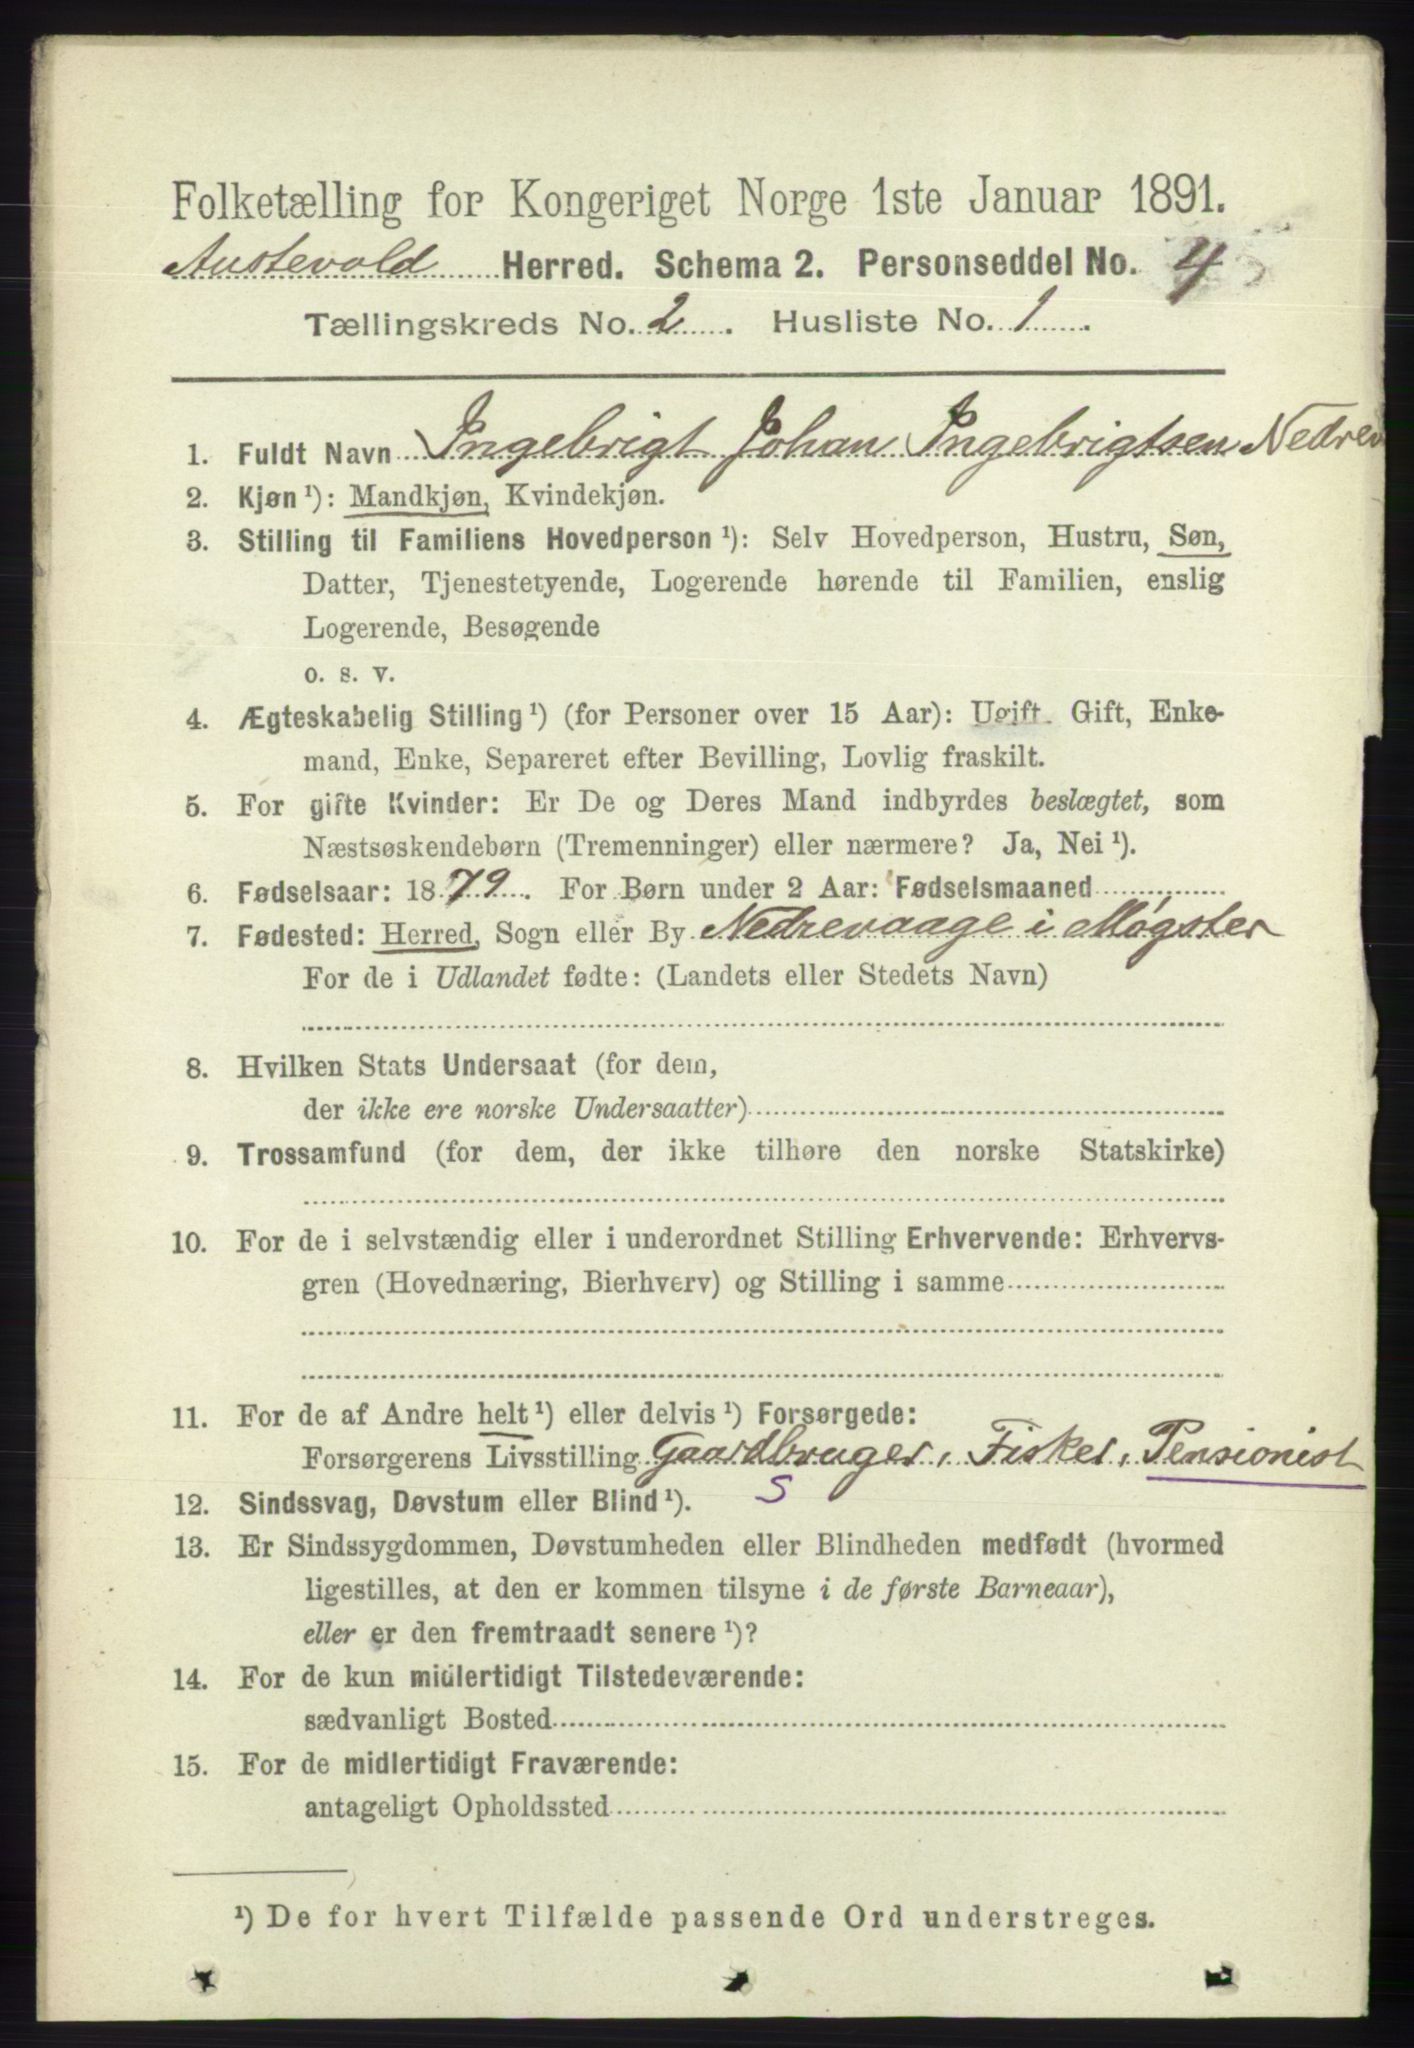 Folketælling for Kongeriget Norge 1ste Januar 1891.
Austevold Herred. Schema 2. Personseddel No. 4
Tællingskreds No. 2. Husliste No. 1.
1. Fuldt Navn Ingebrigt Johan Ingebrigtsen Nedrev
2. Kjøn ¹): Mandkjøn, Kvindekjøn.
3. Stilling til Familiens Hovedperson ¹): Selv Hovedperson, Hustru, Søn,
Datter, Tjenestetyende, Logerende hørende til Familien, enslig
Logerende, Besøgende
o. s. v.
4. Ægteskabelig Stilling ¹) (for Personer over 15 Aar): Ugift. Gift, Enke-
mand, Enke, Separeret efter Bevilling, Lovlig fraskilt.
5. For gifte Kvinder: Er De og Deres Mand indbyrdes beslægtet, som
Næstsøskendebørn (Tremenninger) eller nærmere? Ja, Nei ¹).
6. Fødselsaar: 1879. For Børn under 2 Aar: Fødselsmaaned
7. Fødested: Herred, Sogn eller By Nedrevaage i Møgster
For de i Udlandet fødte: (Landets eller Stedets Navn)
8. Hvilken Stats Undersaat (for dem,
der ikke ere norske Undersaatter)
9. Trossamfund (for dem, der ikke tilhøre den norske Statskirke)
10. For de i selvstændig eller i underordnet Stilling Erhvervende: Erhvervs-
gren (Hovednæring, Bierhverv) og Stilling i samme
11. For de af Andre helt ¹) eller delvis ¹) Forsørgede:
Forsørgerens Livsstilling Gaardbruger, Fisker, Pensionist
12. Sindssvag, Døvstum eller Blind ¹). S
13. Er Sindssygdommen, Døvstumheden eller Blindheden medfødt (hvormed
ligestilles, at den er kommen tilsyne i de første Barneaar),
eller er den fremtraadt senere ¹)?
14. For de kun midlertidigt Tilstedeværende:
sædvanligt Bosted
15. For de midlertidigt Fraværende:
antageligt Opholdssted
¹) De for hvert Tilfælde passende Ord understreges.